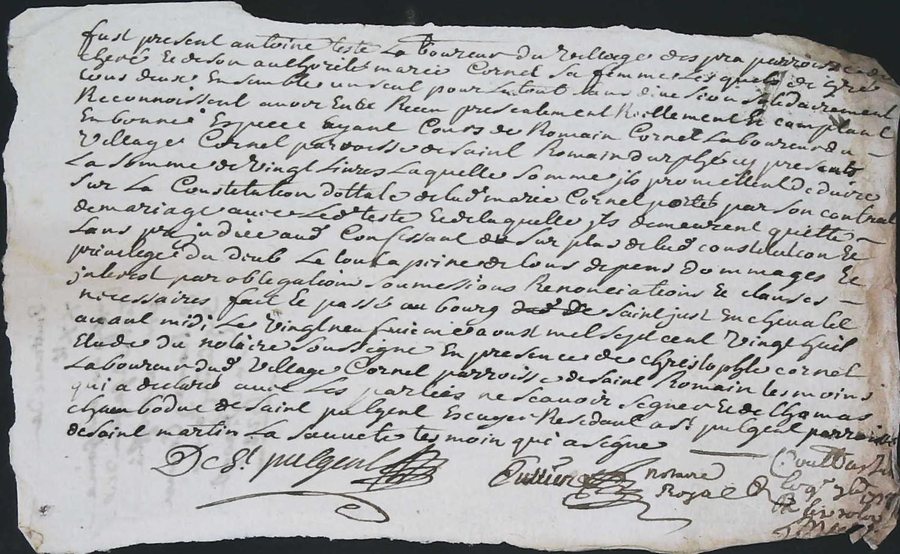 fust present antoine teste Laboureur du village despra parroisse de
cheré Et de son authorité marie Cornet sa femme Lesquels de gré
tous deux Ensemble un seul pour le tout sans division solidairement
Reconnoissent avoir Eu et Receu presentement Reellement Et comptant
En bonne Espece ayant Cours de Romain Cornet Laboureur du
village Cornet parroisse de saint Romain durphe cy present
La somme de vingt Livres Laquelle somme ils promettent deduire
sur La Constitution dottale de lad marie Cornet portée par son contrat
de mariage avec Led teste Et de laquelle ils demeurent quitte
sans prejudice aud Confessant du surplus de lad constitution Et
privilege du deub Le tout a peine de tous depens dommages Et
interest par obligations soumissions Renonciations Et clauses
necessaires fait Et passé au bourg de saint just En chevalet
avant midi Le vingt neufuieme aoust mil sept cent vingt huit
Etude du notaire soussigné En presence de christophle cornet
Laboureur dud village Cornet parroisse de saint Romain temoins
qui a declaré avec Les parties ne scavoir signer Et de thomas
chambodue de saint pulgent Escuyer Residant a st pulgent parroisse
de saint martin La sauveté temoin qui a signé
De St pulgent
notaire
Royal